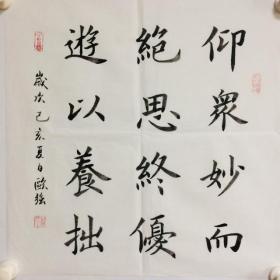 仰眾妙而
絕思終優
遊以養拙
歲次己亥夏日歐強